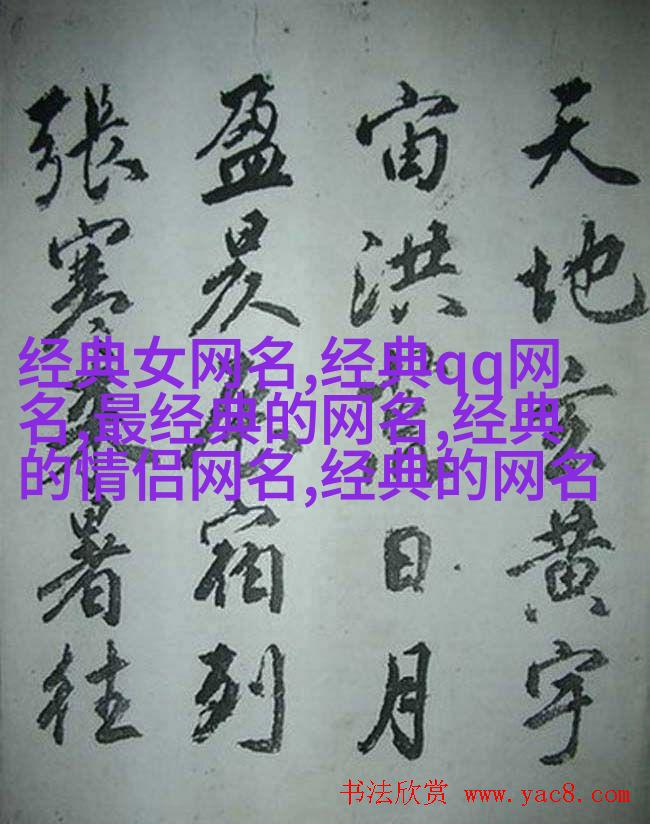 天地玄黄宇
宙洪日月
盈昃宿列
張寒暑往
经典女网名,经典qq网
名,最经典的网名,经典
的情侣网名,经典的网名
书法欣赏 www.yac8.com